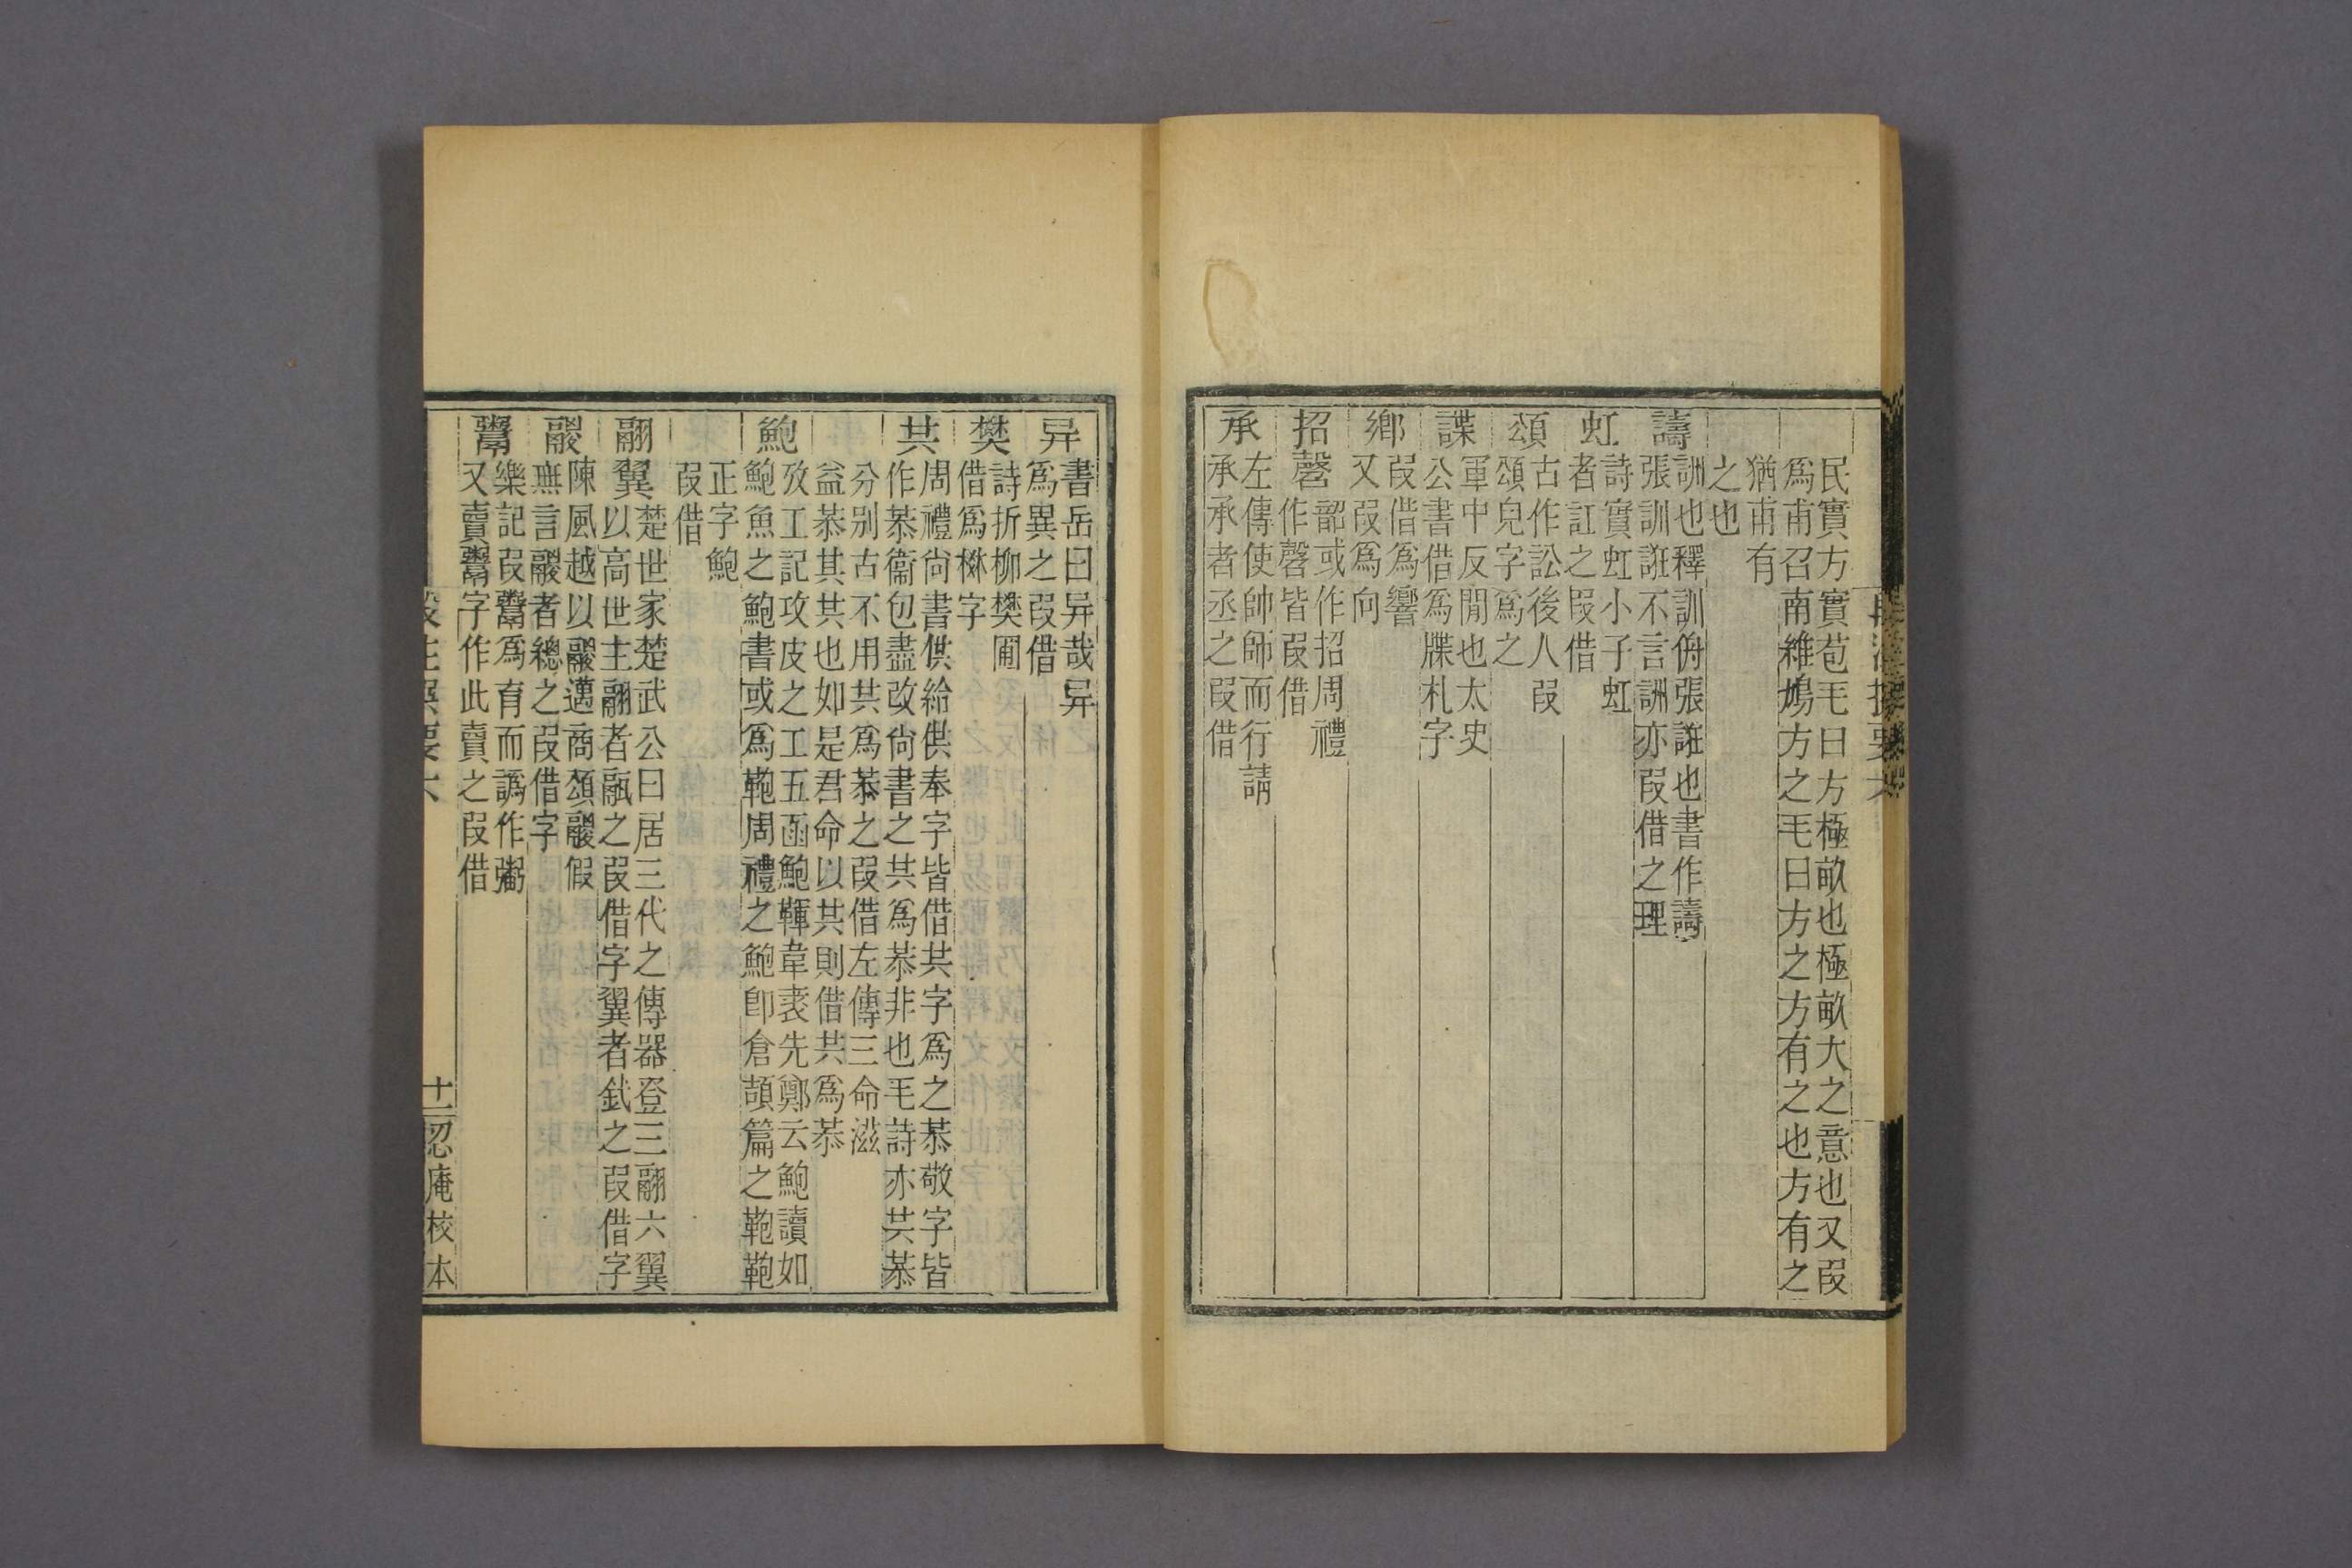 民實方實苞毛曰方極畝也極畝大之意也又叚
爲甫召南維鳩方之毛曰方之方有之也方有之
猶甫有
之也
譸
詶也釋訓侜張誑也書作譸
張訓誑不言詶亦叚借之理
虹
詩實虹小子虹
者訌之叚借
頌
古作訟後人叚
頌皃字爲之
諜
軍中反閒也太史
公書借爲牒札字
鄉
叚借爲響
又叚爲向
招
磬
韶或作招周禮
作磬皆叚借
承
左傳使帥師而行請
承承者丞之叚借
异
書岳曰异哉异
爲異之叚借
樊
詩折柳樊圃
借爲楙字
共
周禮尙書供給供奉字皆借共字爲之恭敬字皆
作恭衞包盡改尙書之共爲恭非也毛詩亦共恭
分别古不用共爲恭之叚借左傳三命滋
益恭其共也如是君命以共則借共爲恭
鮑
攷工記攻皮之工五函鮑韗韋裘先鄭云鮑讀如
鮑魚之鮑書或爲鞄周禮之鮑卽倉頡篇之鞄鞄
正字鮑
叚借
翮
翼
楚世家楚武公曰居三代之傳器登三翮六翼
以高世主翮者鬲之叚借字翼者釴之叚借字
鬷
陳風越以鬷邁商頌鬷假
無言鬷者總之叚借字
鬻
樂記叚鬻爲育而譌作粥
又賣鬻字作此賣之叚借
十一
忍庵校本